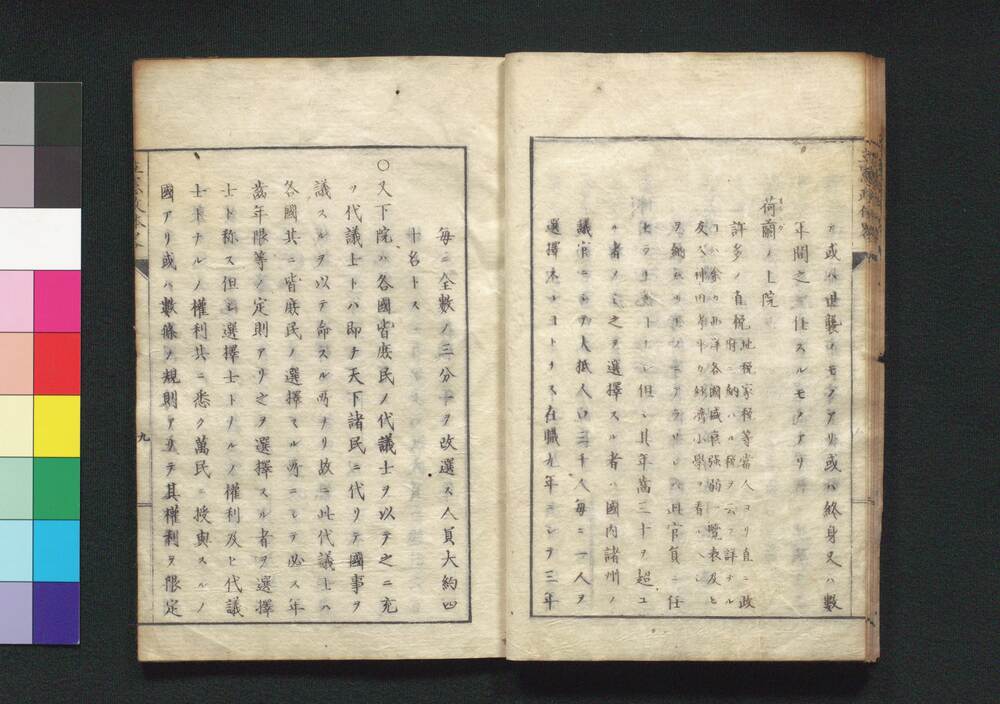 ナ或ハ世襲スルモノアリ或ハ終身又ハ數
年間之ニ任スルモノアリ
荷蘭ノ上院
許多ノ直税 地税家税等當人ヨリ直ニ政
府ニ納ハル税ヲ云フ詳ナル
余カ西洋各國盛衰強弱一覽表及ヒ
友人神田孝平カ經濟小學ヲ看ルヘシ
ヲ納ムル 此官員ニ任
セラリ 但シ其年萬三十ヲ超ユ
ル者ノミ之ヲ選擇スル者ハ國内諸州ノ
議官ニシテ大抵人口三千人毎ニ一人ヲ
選擇 コトトス在職九年ニシテ三年
毎ニ全數ノ三分一ヲ改選ス人員大約四
十名トス
〇又下院ハ各國皆庶民ノ代議士ヲ以テ之ニ充
ツ代議士トハ即チ天下諸民ニ代リテ國事ヲ
議スルヲ以テ命スル所ナリ故ニ此代議士ハ
各國共ニ皆庶民ノ選擇スル所ニシテ必ス年
齒年限等ノ定則アリ之ヲ選擇スル者ヲ選擇
士ト称ス但シ選擇士トナルノ權利及ヒ代議
士トナルノ權利共ニ悉ク萬民ニ授與スルノ
國アリ或ハ數條ノ規則アリテ其權利ヲ限定
九